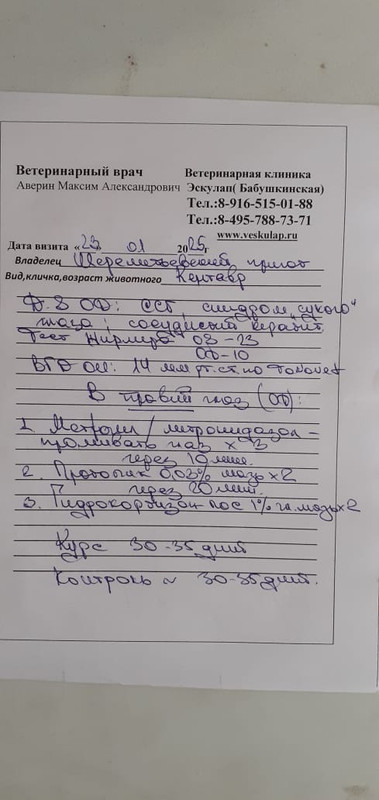 Ветеринарный врач Ветеринарная клиника
Аверин Максим Александрович Эскулап( Бабушкинская)
Тел.:8-916-515-01-88
Тел.:8-495-788-73-71
www.veskulap.ru
Дата визита «23. 01 2025г
Владелец Шереметьевский приют
Вид,кличка,возраст животного Кентавр
Д.З ОД: ССГ, синдром „сухого"
глаза, сосудистый кератит
Тест Ширмера
OD-10
ВГД OU: 14 мм рт.ст. по Tonovet
В правый глаз (OD):
1. / метронидазол -
промывать глаз х 3
через 10 мин.
2. Протопик 0,03% мазь х2
через 20 мин.
3. Гидрокортизон пос 1% гл. мазь х2
Курс 30-35 дней
Контроль ~ 30-35 дней.